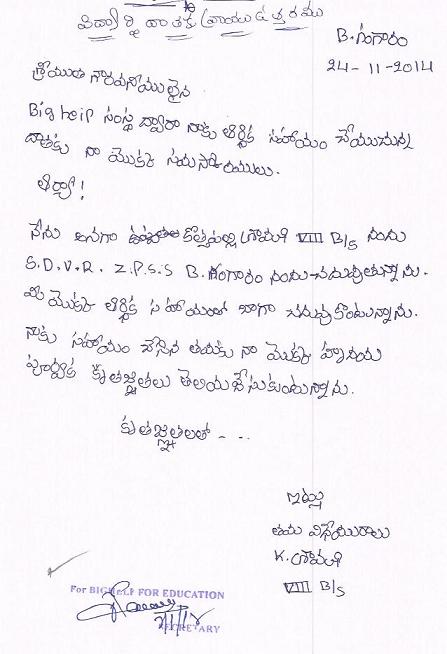 విద్యార్థి దాతకు వ్రాయు ఉత్తరము
B. గంగారం
24-11-2014
శ్రీయుత గౌరవనీయులైన
Big help సంస్థ ద్వారా నాకు ఆర్థిక సహాయం చేయుచున్న
దాతకు నా యొక్క నమస్కారములు.
ఆర్యా!
నేను అనగా కొత్తపల్లి శ్రావణి VIII B/s నందు
S.D.V.R. Z.P.S.S B. గంగారం నందు చదువుతున్నాను.
మీ యొక్క ఆర్థిక సహాయంతో బాగా చదువుకొంటున్నాను.
నాకు సహాయం చేసిన తమకు నా యొక్క హృదయ
పూర్వక కృతజ్ఞతలు తెలియజేసుకుంటున్నాను.
కృతజ్ఞతలతో - - .
ఇట్లు
తమ విధేయురాలు
K. శ్రావణి
VIII B/s
For BIGHELP FOR EDUCATION
SECRETARY